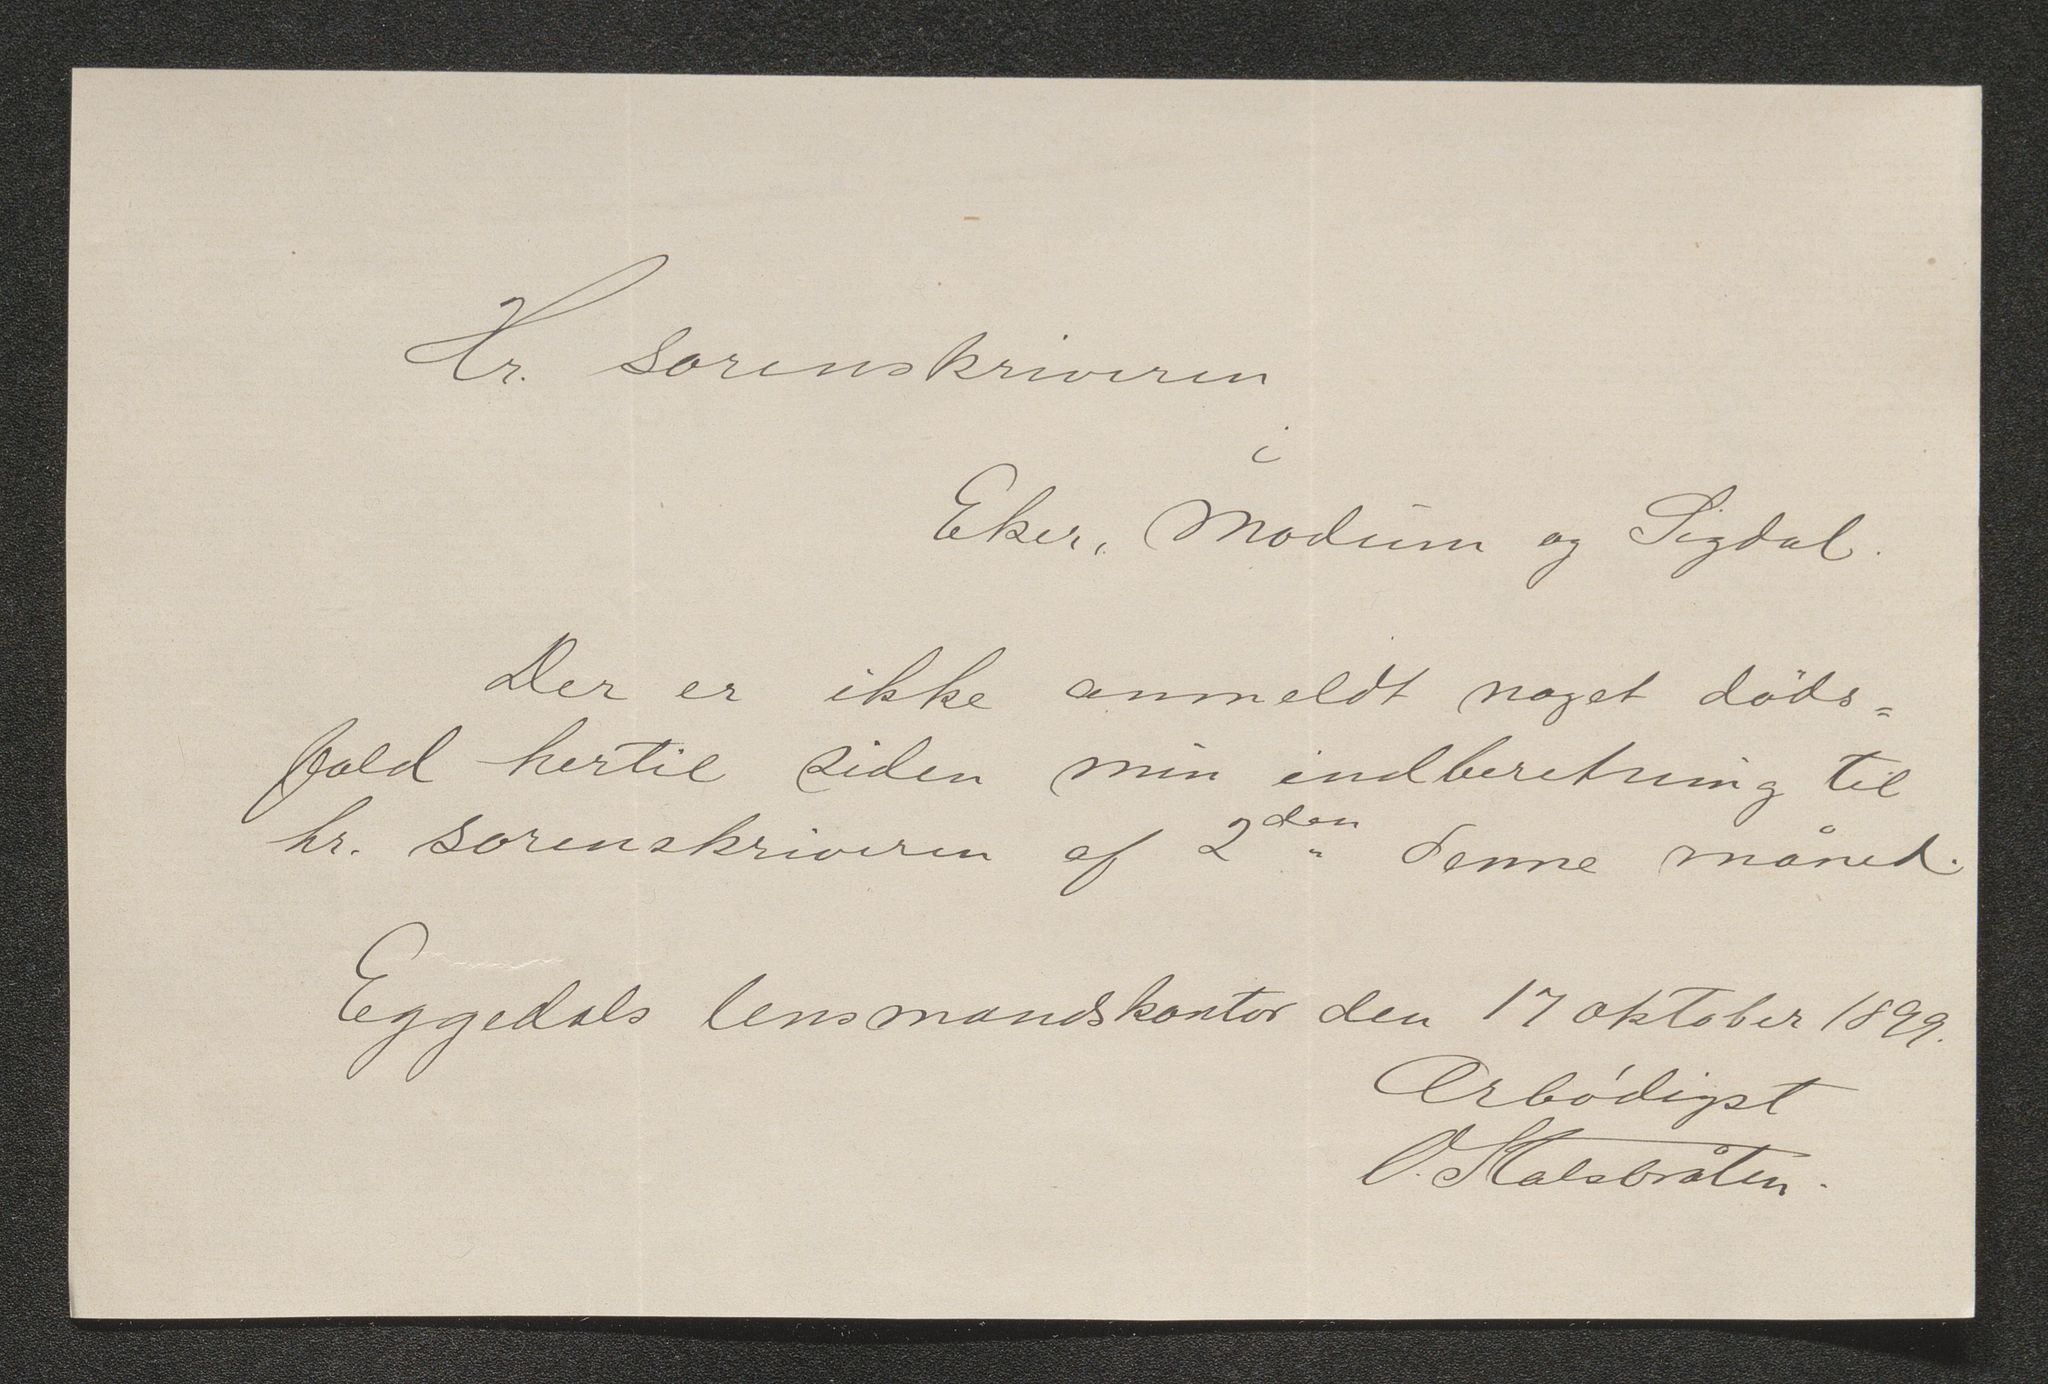 Hr. sorenskriveren
i
Eker, Modum og Sigdal.
Der er ikke anmeldt noget døds=
fald hertil siden min indberetning til
hr. sorenskriveren af 2den denne måned.
Eggedals lensmandskontor den 17 oktober 1899.
Ærbødigst
O. Kalsbråten.